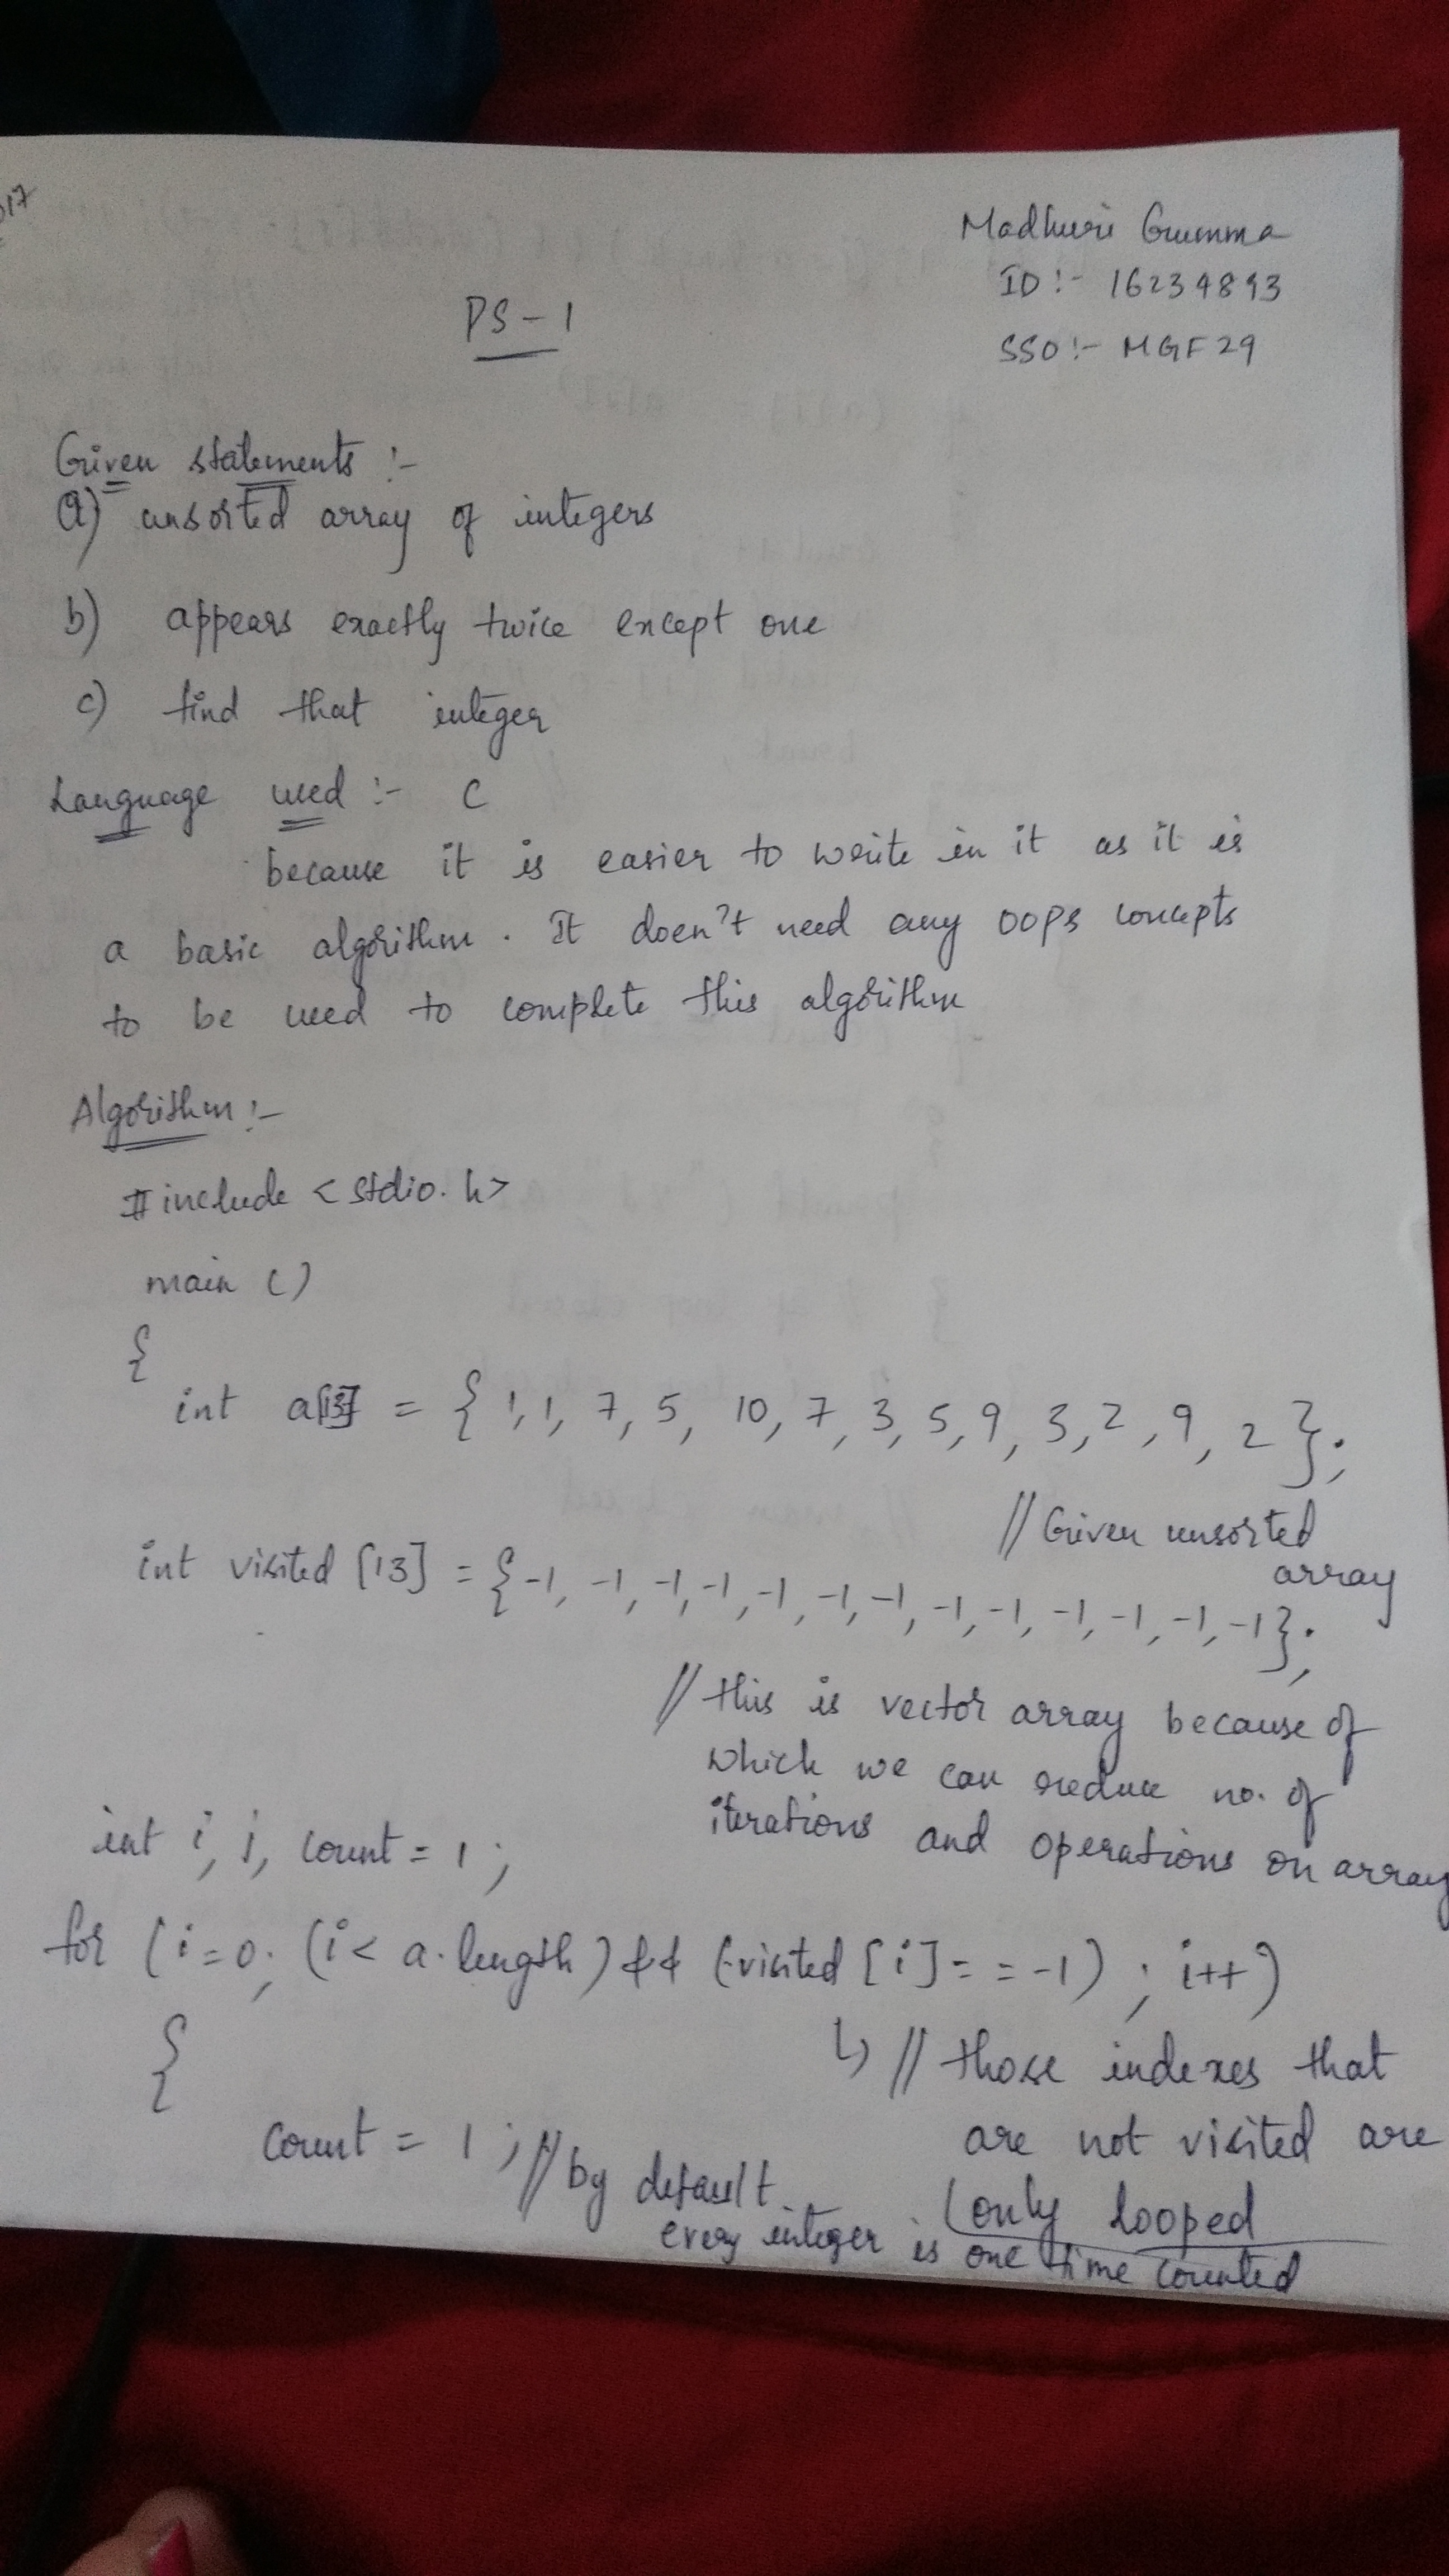 017
Madhuri Gumma
ID:- 16234893
SSO:- MGF29
PS-1
Given statements :-
a) unsorted array of integers
b) appears exactly twice except one
c) find that integer
Language used :- C
because it is easier to write in it as it is
a basic algorithm. It doen't need any OOPS concepts
to be used to complete this algorithm
Algorithm :-
#include <stdio.h>
main ()
{
int a[13] = { 1,1, 7, 5, 10, 7, 3, 5, 9, 3, 2, 9, 2 };
// Given unsorted
array
int visited [13] = {-1, -1, -1, -1, -1, -1, -1, -1, -1, -1, -1, -1, -1};
// this is vector array because of
which we can reduce no. of
iterations and operations on array
int i, j, count = 1;
for (i=0; (i< a.length) && (visited [i]==-1) ; i++)
{
↳ // those indexes that
are not visited are
only looped
count = 1; // by default
every integer is one time counted